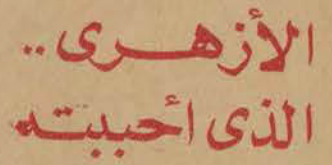 الأزهرى..
الذى أحببته